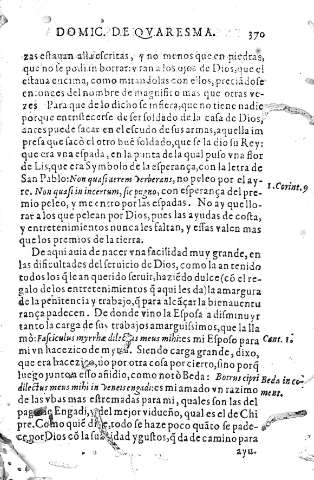 DOMIC. DE QVARESMA. 370
zas estauan allà escritas, y no menos que en piedras,
que no se podiã borrar: y tan a los ojos de Dios, que el
estaua encima, como mirandolas con ellos, preciãdose
entonces del nombre de magnifico mas que otras ve-
zes. Para que de lo dicho se infiera, que no tiene nadie
porque entristecerse de ser soldado de la casa de Dios,
antes puede sacar en el escudo de sus armas, aquella im
presa que sacò el otro buẽ soldado, que se la dio su Rey:
que era vna espada, en la punta de la qual puso vna flor
de Lis, que era Symbolo de la esperança, con la letra de
San Pablo: Non quasi aerem verberans, no peleo por el ay-
re. Non quasi in incertum, sic pugno, con esperança del pre-
mio peleo, y me entro por las espadas. No ay que llo-
rar a los que pelean por Dios, pues las ayudas de costa,
y entretenimientos nunca les faltan, y essas valen mas
que los premios de la tierra.
1. Corint. 9
De aqui auia de nacer vna facilidad muy grande, en
las dificultades del seruicio de Dios, como la an tenido
todos los q̃ le an querido seruir, haziẽdo dulce (cõ el re-
galo de los entretenimientos q̃ aqui les da) la amargura
de la penitencia y trabajo, q̃ para alcãçar la bienauentu
rança padecen. De donde vino la Esposa a disminuyr
tanto la carga de sus trabajos amarguissimos, que la lla
mò: Fasciculus myrrhæ dilectus meus mihi: es mi Esposo para
mi vn hacezico de myrra. Siendo carga grande, dixo,
que era hacezico, no por otra cosa por cierto, sino porq̃
luego junto a esso añidio, como notò Beda: Botrus cipri
dilectus meus mihi in vineis engadi: es mi amado vn razimo
de las vbas mas estremadas para mi, quales son las del
pago de Engadi, y del mejor vidueño, qual es el de Chi
pre. Como quiẽ dize, todo se haze poco quãto se pade-
ce, por Dios cõ la suauidad y gustos, q̃ da de camino para
Cant. 1.
Beda in co
ment.
ayu.